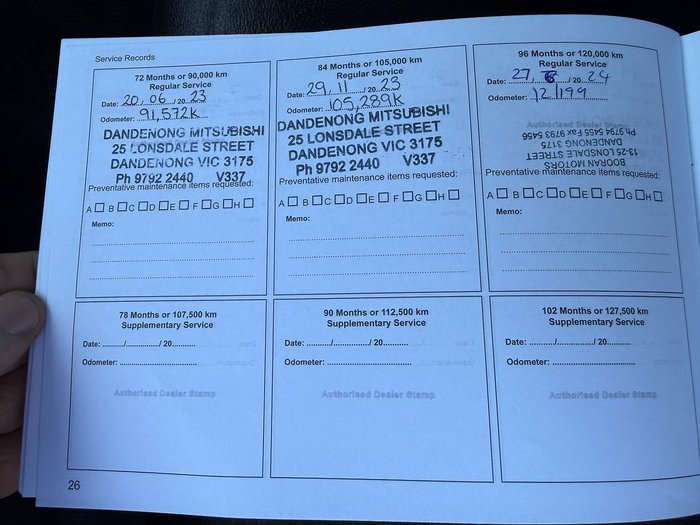 Service Records
72 Months or 90,000 km
Regular Service
Date: 20, 06 /20 23
Odometer: 91,572K
DANDENONG MITSUBISHI
25 LONSDALE STREET
DANDENONG VIC 3175
Ph 9792 2440 V337
Preventative maintenance items requested:
A B C D E F G H
Memo:
84 Months or 105,000 km
Regular Service
Date: 29, 11 /20 23
Odometer: 105,289K
DANDENONG MITSUBISHI
25 LONSDALE STREET
DANDENONG VIC 3175
Ph 9792 2440 V337
Preventative maintenance items requested:
A B C D E F G H
Memo:
96 Months or 120,000 km
Regular Service
Date: 27, /20 24
Odometer: 121199
Authorised Dealer Stamp
BOORAN MOTORS
13-25 LONSDALE STREET
DANDENONG 3175
Ph 9794 5455 Fax
Preventative maintenance items requested:
A B C D E F G H
Memo:
78 Months or 107,500 km
Supplementary Service
Date: ........../............/ 20..........
Odometer: ....................................
Authorised Dealer Stamp
90 Months or 112,500 km
Supplementary Service
Date: ........../............/ 20..........
Odometer: ....................................
Authorised Dealer Stamp
102 Months or 127,500 km
Supplementary Service
Date: ........../............/ 20..........
Odometer: ....................................
Authorised Dealer Stamp
26